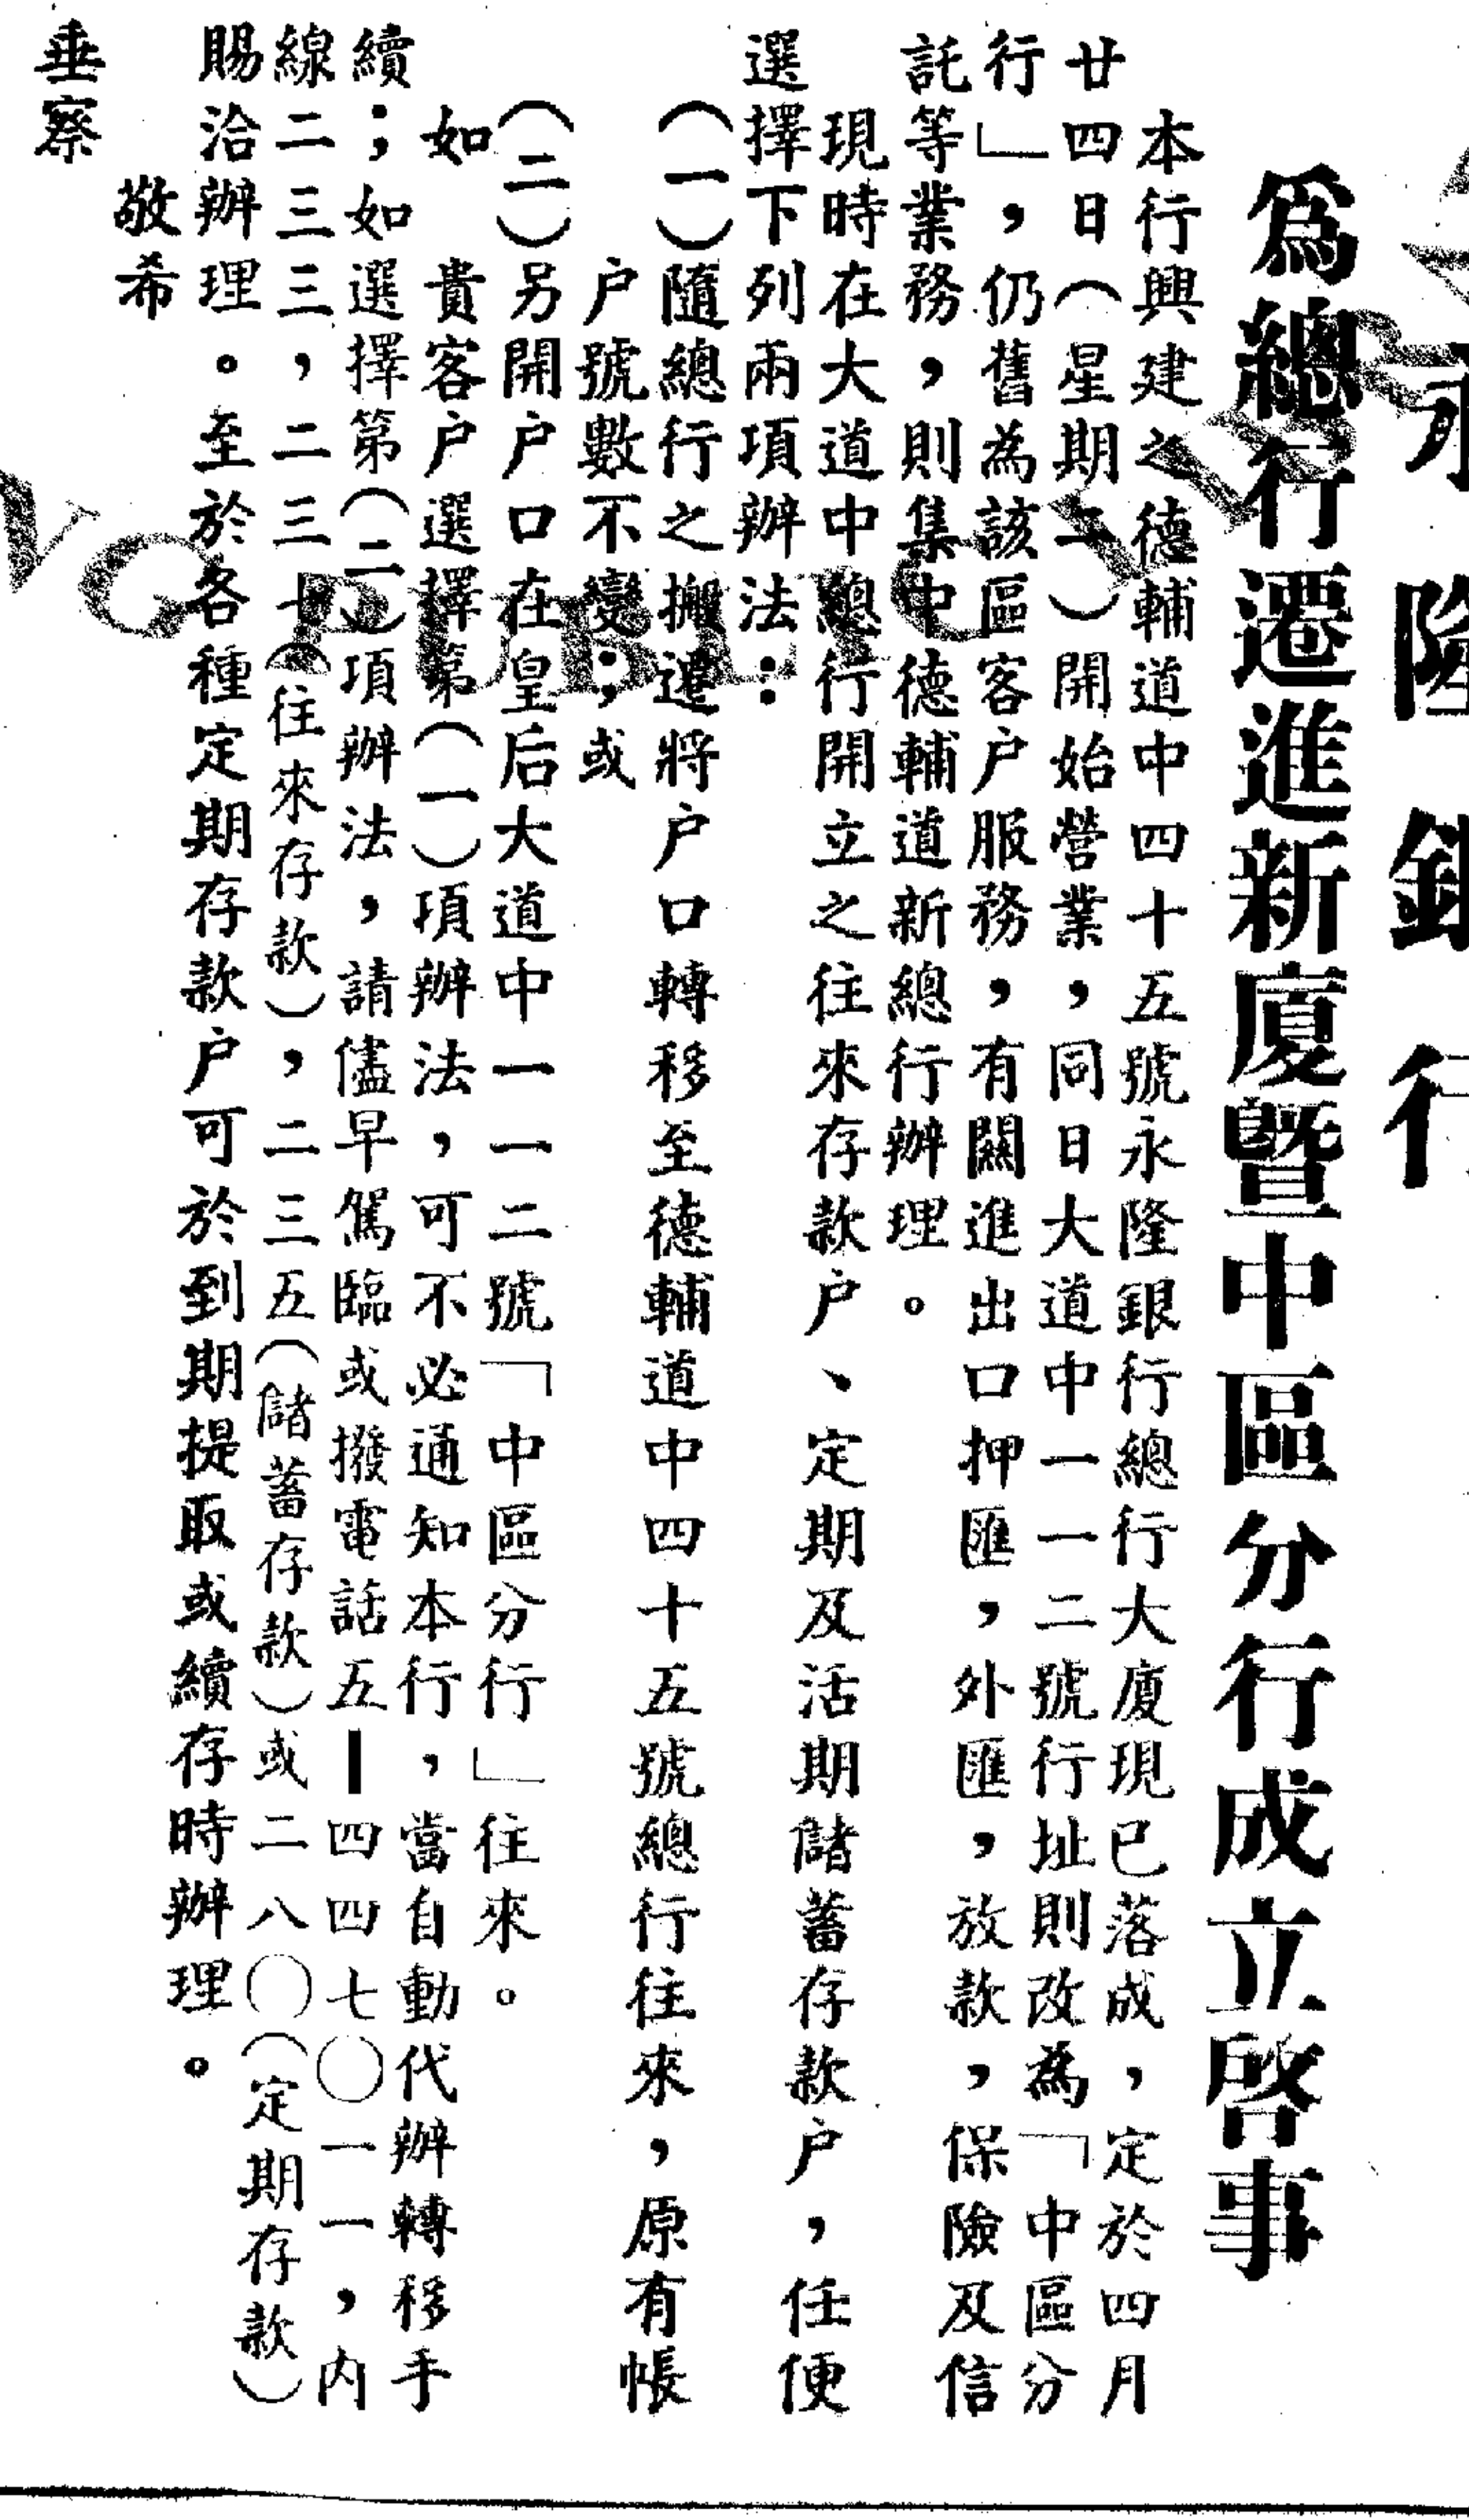 永隆銀行
為總行遷進新廈暨中區分行成立啓事
本行興建之德輔道中四十五號永隆銀行總行大廈現已落成，定於四月
廿四日（星期二）開始營業，同日大道中一一二號行址則改為「中區分
行」，仍舊為該區客户服務，有關進出口押匯，外匯，放款，保險及信
託等業務，則集中德輔道新總行辦理。
現時在大道中總行開立之往來存款户、定期及活期儲蓄存款户，任便
選擇下列兩項辦法：
（一）隨總行之搬遷將户口轉移至德輔道中四十五號總行往來，原有帳
户號數不變；或
（二）另開户口在皇后大道中一一二號「中區分行」往來。
如　貴客户選擇第（一）項辦法，可不必通知本行，當自動代辦轉移手
續；如選擇第（二）項辦法，請儘早駕臨或撥電話五—四四七〇一一，內
線二三三，二三七（往來存款），二三五（儲蓄存款）或二八〇（定期存款）
賜洽辦理。至於各種定期存款户可於到期提取或續存時辦理。
敬希
垂察